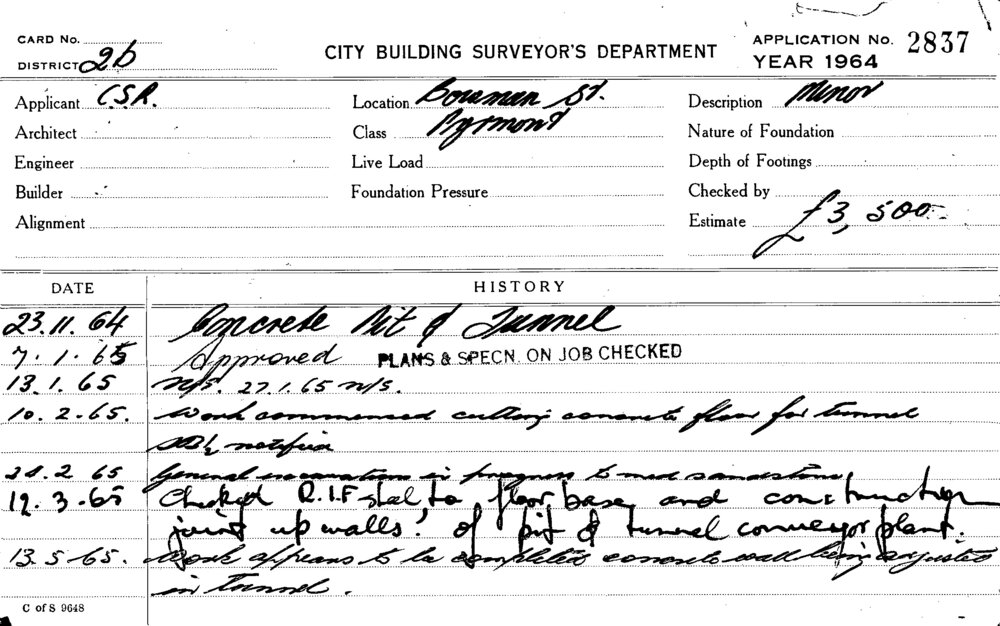 CARD No.
DISTRICT 2b
CITY BUILDING SURVEYOR'S DEPARTMENT
APPLICATION No. 2837
YEAR 1964
Applicant C.S.R.
Location Bowman St.
Description Minor
Architect
Class Pyrmont
Nature of Foundation
Engineer
Live Load
Depth of Footings
Builder
Foundation Pressure
Checked by
Alignment
Estimate £3,500
DATE HISTORY
23.11.64 Concrete Pit & Tunnel
7.1.65 Approved PLANS & SPECN. ON JOB CHECKED
13.1.65 N/S. 27.1.65 N/S.
10.2.65. Work commenced cutting concrete floor for tunnel
28.2.65 General excavation in progress to med sandstone
12.3.65 Checked R.I.F steel to floor base and construction
joint up walls of pit & tunnel conveyor plant.
13.5.65. Work appears to be completed concrete wall being adjusted
in tunnel.
C of S 9648